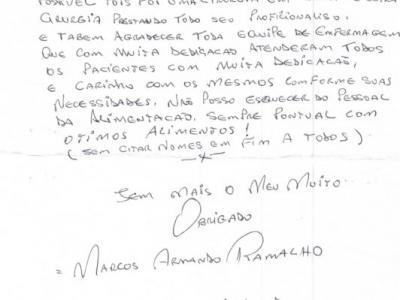 POSSIVEL POIS FOI UMA CIRURGIA
CIRURGIA PRESTANDO TODO SEU PROFICIONALISO.
E TABEM AGRADECER TODA EQUIPE DE ENFERMAGEM
QUE COM MUITA DEDICAÇÃO ATENDERAM TODOS
OS PACIENTES COM MUITA DEDICAÇÃO,
E CARINHO COM OS MESMOS CONFORME SUAS
NECESSIDADES. NÃO POSSO ESQUECER DO PESSOAL
DA ALIMENTACAO. SEMPRE PONTUAL COM
OTIMOS ALIMENTOS!
(SEM CITAR NOMES EM FIM A TODOS)
SEM MAIS O MEU MUITO
OBRIGADO
= MARCOS ARMANDO RAMALHO